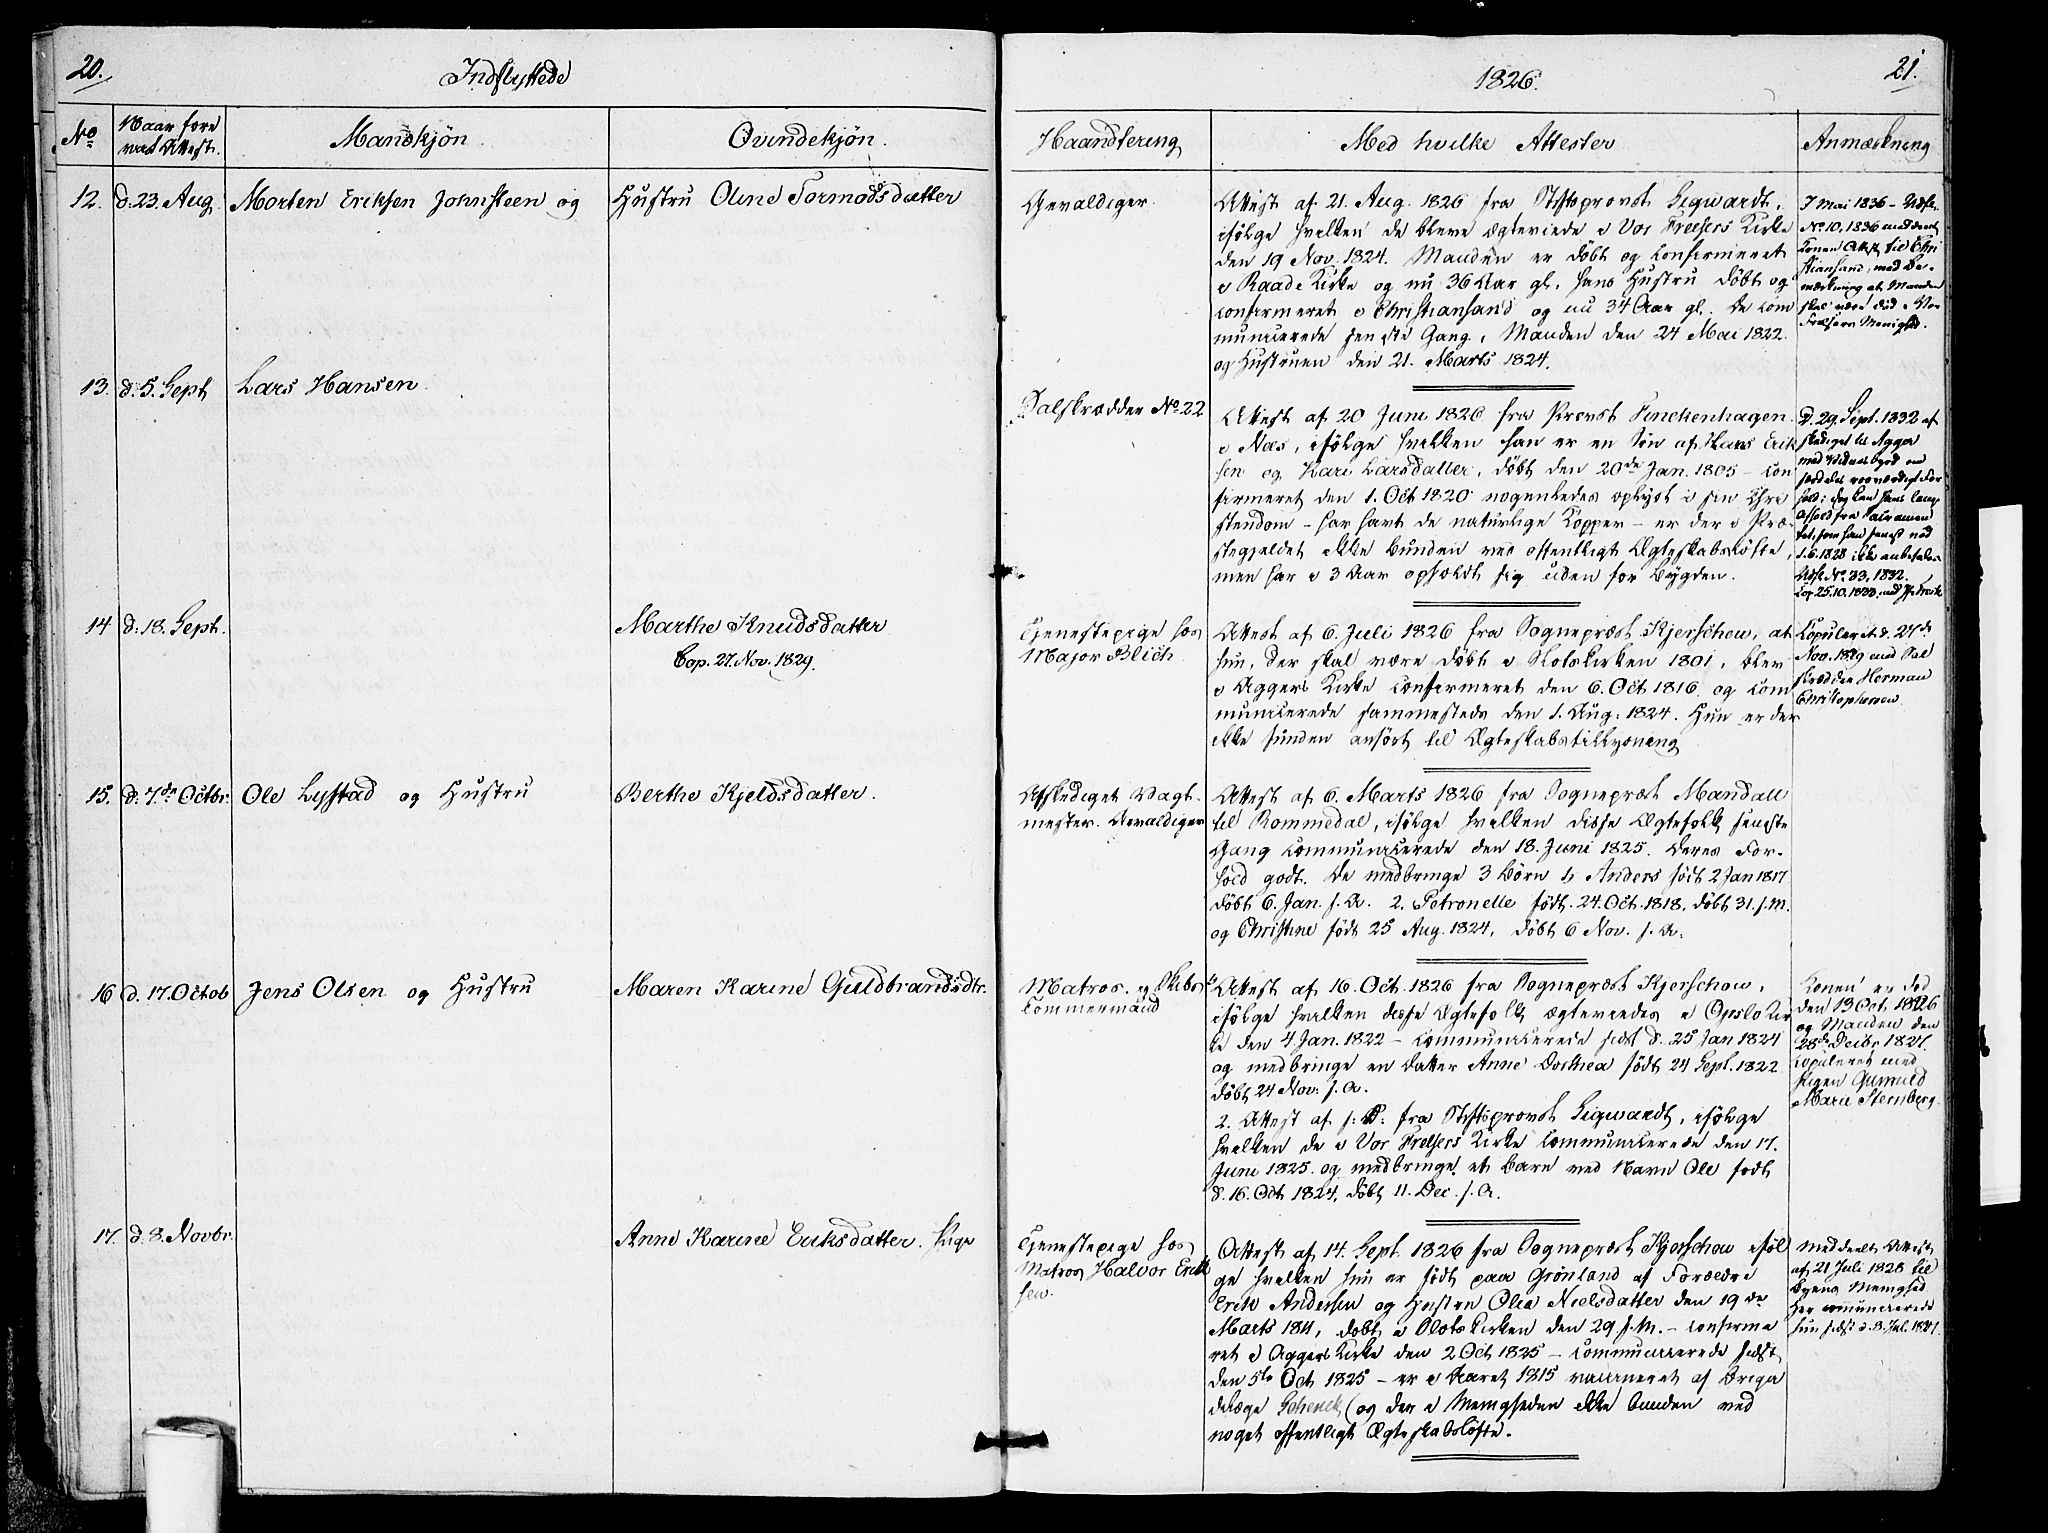 20.
Indflyttede
No
Naar fore
vist Attest.
Mandkjön
Qvindekjön.
12.
d: 23. Aug.
Morten Eriksen Johnsteen og
Hustru Oline Tormodsdatter
13.
d. 5. Sept
Lars Hansen
14
d. 18. Sept.
Marthe Knudsdatter
Cop. 27. Nov. 1829.
15.
d. 7de Octbr.
Ole Lystad og Hustru
Berthe Kjeldsdatter.
16
d. 17. Octob
Jens Olsen og Hustru
Maren Karine Guldbrandsdtr.
17.
d. 8. Novbr.
Anne Karine Eriksdatter. Pige
1826.
21.
Haandtering
Med hvilke Attester
Anmærkning
Gevaldiger.
Attest af 21. Aug. 1826 fra Stiftsprovst Sigwardt,
ifölge hvilken de bleve ægteviede i Vor Frelsers Kirke
den 19 Nov. 1824. Manden er döbt og confirmeret
i Raade Kirke og nu 36 Aar gl. hans Hustru döbt og
confirmeret i Christiansand og nu 34 Aar gl. De com
municerede seneste Gang, Manden den 24 Mai 1822
og Hustruen den 21. Marts 1824.
7 Mai 1836 - Udfl.
No 10, 1836 meddeelt
Konen Attest til Chri
stiansand, med Be-
mærkning at Manden
skal være död i Vor
Frelsers Menighed.
Salskrædder No 22
Attest af 20 Juni 1826 fra Provst Finckenhagen
i Næs, ifölge hvilken han er en Sön af Hans Erik
sen og Kari Larsdatter, döbt den 20de Jan. 1805 - con
firmeret den 1. Oct 1820 nogenledes oplyst i sin Chri
stendom - har havt de naturlige Kopper - er der i Præ-
stegjeldet ikke bunden ved offentligt Ægteskabslöfte,
men har i 3 Aar opholdt sig uden for Bygden.
D. 29. Sept. 1832 af
skediget til Agger
med Vidnesbyrd om
1.6.1828 ikke anbefales
Udfl. No 33, 1832.
Tjenestepige hos
Major Blich
Attest af 6. Juli 1826 fra Sognepræst Kjerschow, at
hun, der skal være döbt i Slotskirken 1801, blev
i Aggers Kirke confirmeret den 6. Oct 1816 og com
municerede sammesteds den 1. Aug. 1824. Hun er der
ikke funden anfört til Ægteskabstillysning
Copuleret d. 27de
Nov. 1829 med Sal
skrædder Herman
Christophersen
Afskediget Vagt-
mester. Gevaldiger
Attest af 6. Marts 1826 fra Sognepræst Mandall
til Rommedal, ifölge hvilken disse Ægtefolk seneste
Gang communicerede den 18. Juni 1825. Deres For-
hold godt. De medbringe 3 Börn 1, Anders födt 2 Jan 1817
döbt 6. Jan. s. A. 2. Petronelle födt. 24. Oct. 1818. döbt 31. s. M.
og Christine födt 25 Aug. 1824, döbt 6 Nov. s. A.
Matros. og Skibs
Tömmermand
Attest af 16. Oct. 1826 fra Sognepræst Kjerschow,
ifölge hvilken disse Ægtefolk ægteviedes i Opslo Kir
ke den 4 Jan. 1822 - communicerede sidst d. 25 Jan 1824
og medbringe en Datter Anne Dorthea födt 24 Sept. 1822
döbt 24 Nov. s. A.
2. Attest af s. D. fra Stiftsprovst Sigwardt, ifölge
hvilken de i Vor Frelsers Kirke communicerede den 17.
Juni 1825. og medbringe et Barn ved Navn Ole födt
d. 16. Oct 1824, döbt 11. Dec. s. A.
Konen er död
den 13 Oct. 1826
og Manden den
28de Decbr 1827.
copuleret med
Pigen Gunnild
Marie Sternberg.
Tjenestepige hos
Matros Halvor Erik
sen.
Attest af 14. Sept. 1826 fra Sognepræst Kjerschow iföl
ge hvilken hun er födt paa Grönland af Forældre
Erik Andersen og Hustru Olea Nielsdatter den 19de
Marts 1811, döbt i Slotskirken den 29 s. M. - confirme
ret i Aggers Kirke den 2 Oct 1825 - communicerede sidst
den 5te Oct 1825 - er i Aaret 1815 vaccineret af Briga
delæge Schenck (og der i Menigheden ikke bunden ved
noget offentligt Ægteskabslöfte.
Meddeelt Attest
af 21 Juli 1828 til
Byens Menighed
Her communicerede
hun sidst d. 8. Jul. 1827.